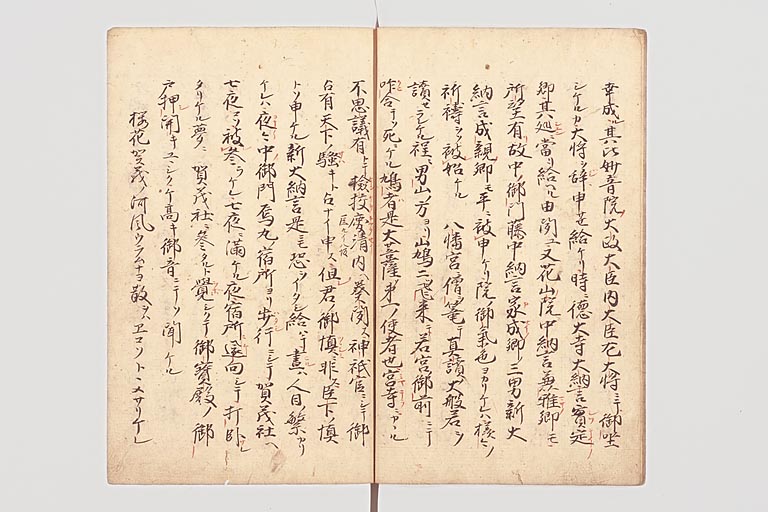 幸成ル其比妙音院大政大臣内大臣左大将ニテ御坐
シケルカ大将ヲ辞申サセ給ケリ時ニ徳大寺大納言實定
卿其廻ニ當リ給ヘル由聞ユ又花山院中納言兼雅卿モ
所望有故中御門藤中納言家成卿ノ三男新大
納言成親卿モ平ニ被申ケリ院ノ御氣色ヨカリケレハ様々ノ
祈禱ヲソ被始ケル 八幡宮ニ僧ヲ篭テ真讀ノ大般若ヲ
讀セラレケル程ニ男山ノ方ヨリ山鳩二飛来テ若宮御前ニテ
咋合テソ死ニケル鳩者是大菩薩ノ第一ノ使者也宮寺ニカヽル
不思議有トテ檢校慶清内ヘ奏聞ス神祇官ニシテ御
占有天下ノ騒キト占ナイ申ス但君ノ御慎ニ非ス臣下ノ慎
トソ申ケル新大納言是ニモ恐ヲイタシ給ハテ晝ハ人目ノ繁カリ
ケレハ夜々中御門烏丸ノ宿所ヨリ歩行ニテ賀茂社ヘ
七夜マテ被参ケル七夜ニ満ケル夜宿所ニ還向シテ打臥
タリケル夢ニ賀茂社ヘ参タルト覺シクテ御寶殿ノ御
戸押開キユヽシク氣高キ御音ニテソ聞ケル
桜花賀茂ノ河風ウラムナヨ散ヲハエコソトヽメサリケレ